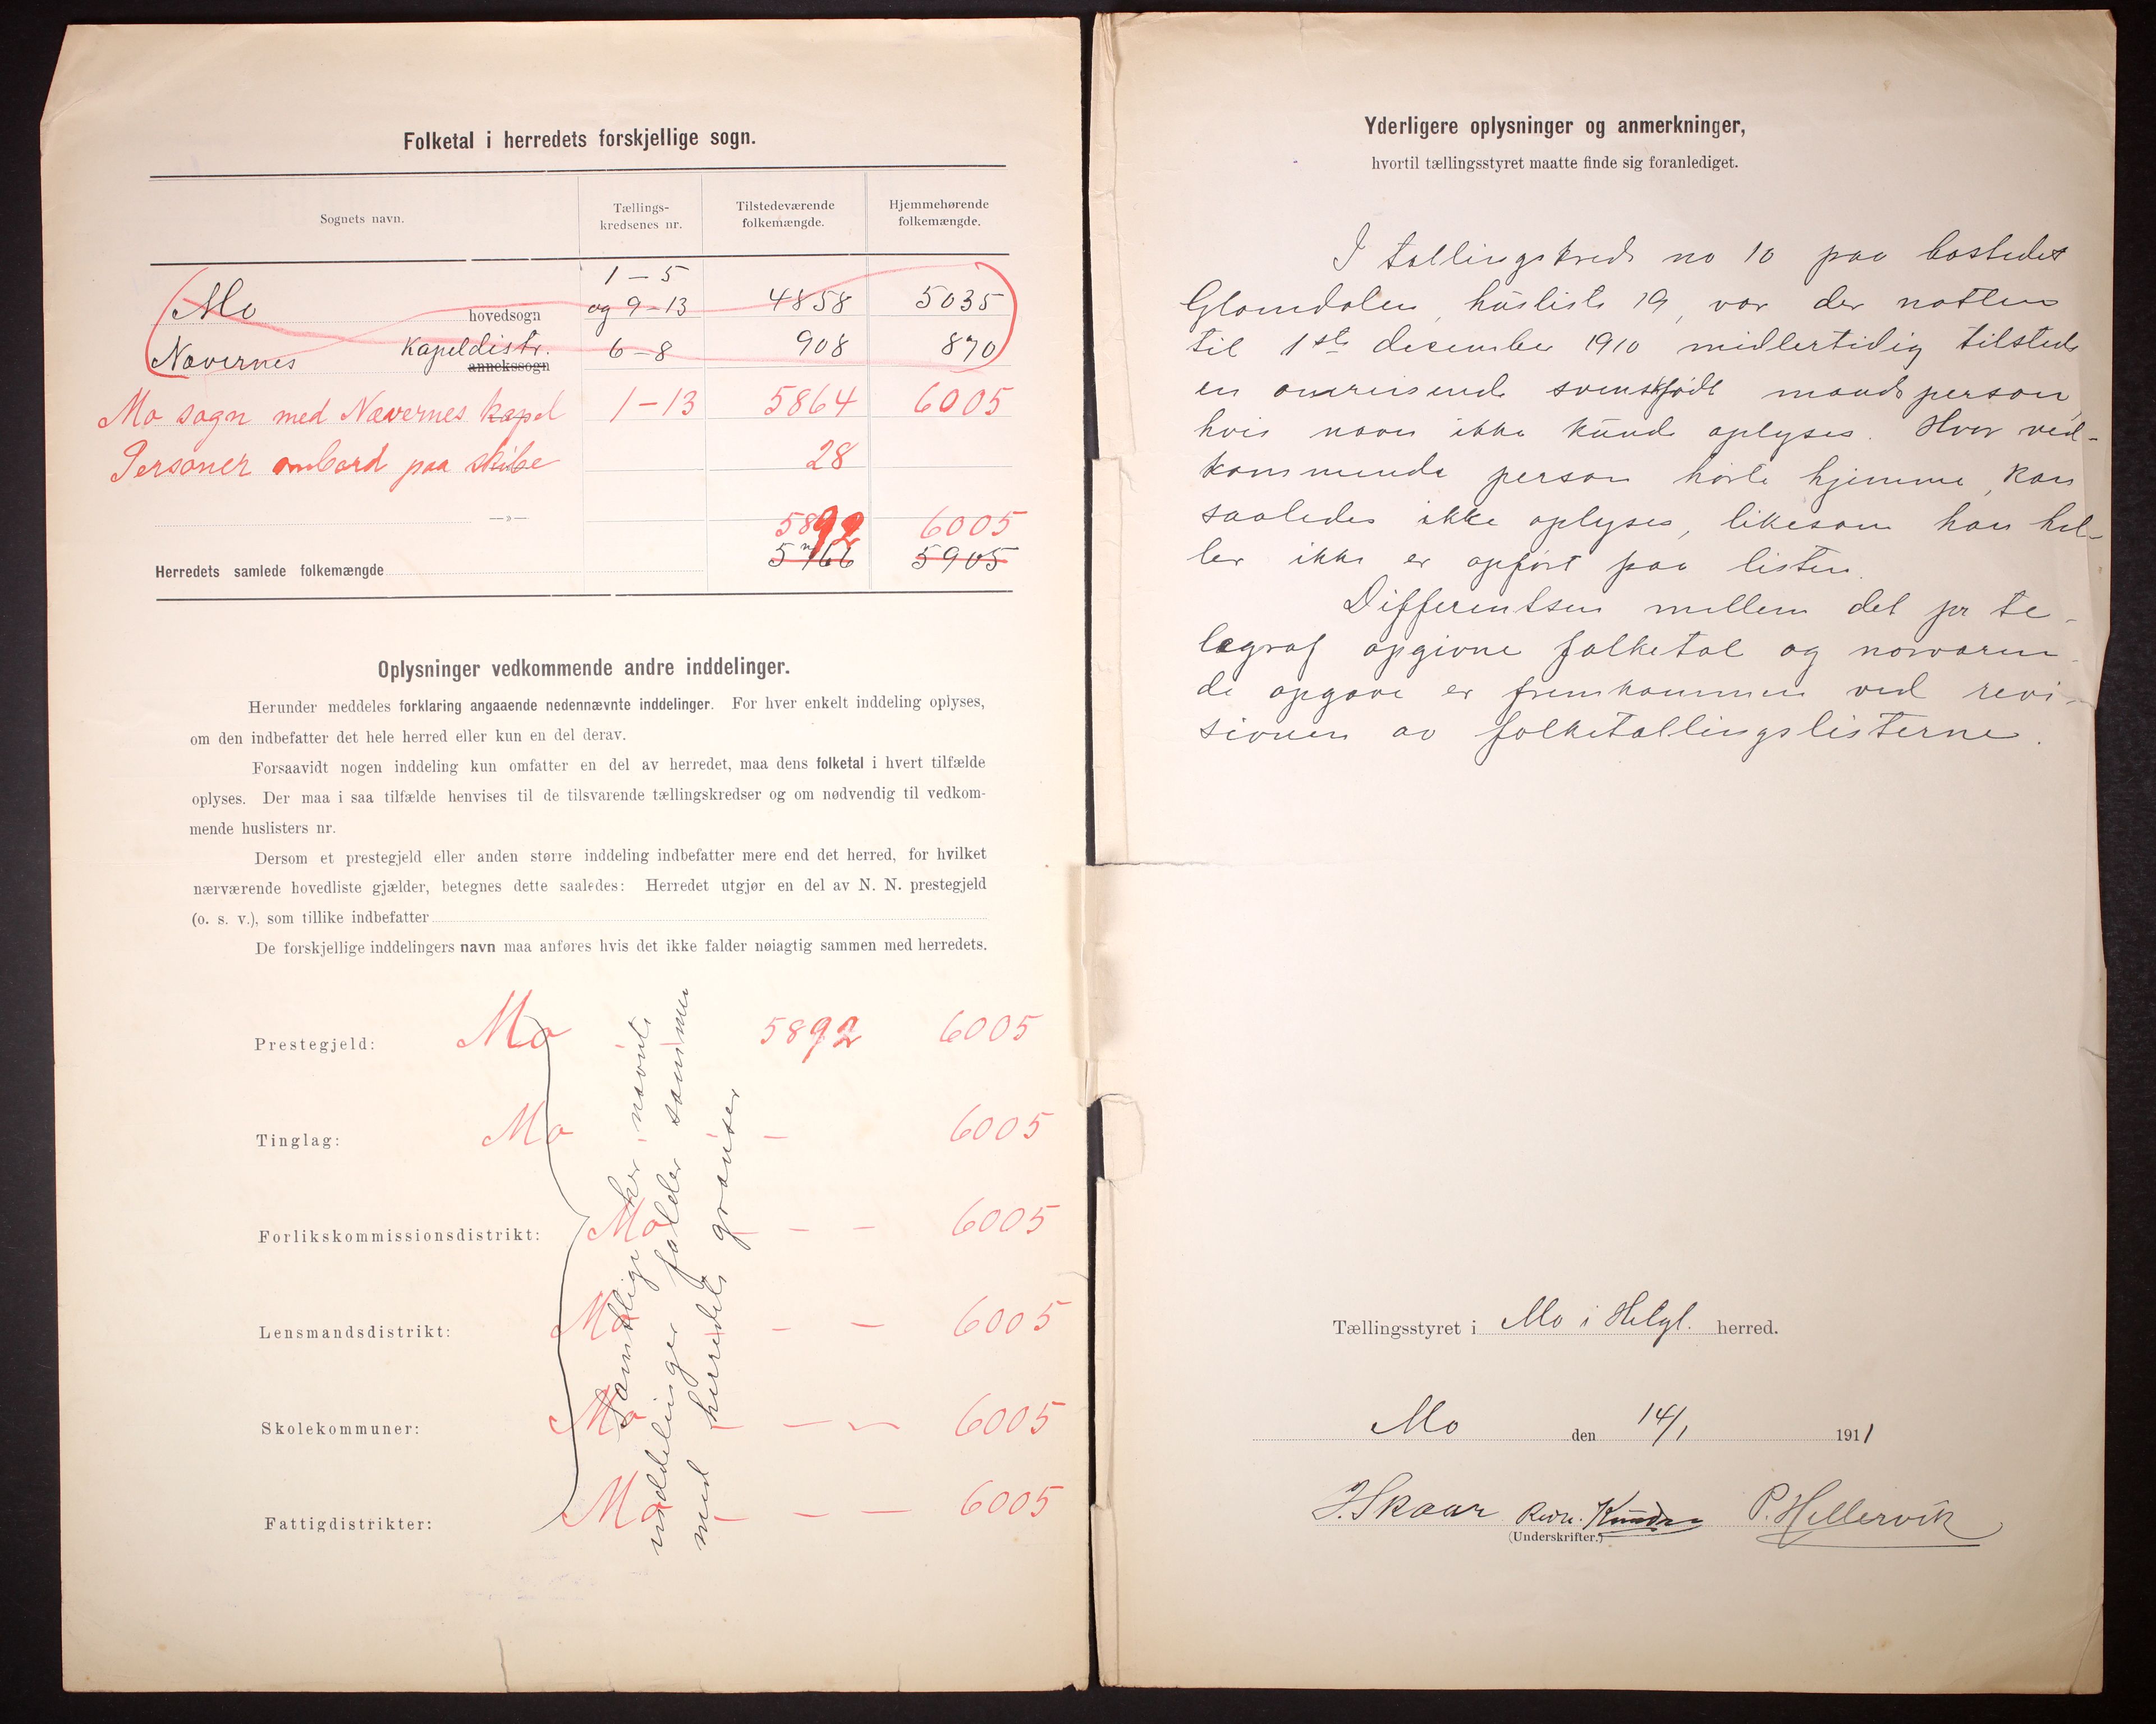 Folketal i herredets forskjellige sogn.
Sognets navn.
Tællings-
kredsenes nr.
Tilstedeværende
folkemængde.
Hjemmehørende
folkemængde.
1 - 5
Mo hovedsogn og 9 - 13 4858 5035
Nævernes Kapeldistr. annekssogn 6 - 8 908 870
Mo sogn med Nævernes kapel 1 - 13 5864 6005
Personer ombord paa skibe 28
—»—
5892 6005
Herredets samlede folkemængde 5766 5905
Oplysninger vedkommende andre inddelinger.
Herunder meddeles forklaring angaaende nedennævnte inddelinger. For hver enkelt inddeling oplyses,
om den indbefatter det hele herred eller kun en del derav.
Forsaavidt nogen inddeling kun omfatter en del av herredet, maa dens folketal i hvert tilfælde
oplyses. Der maa i saa tilfælde henvises til de tilsvarende tællingskredser og om nødvendig til vedkom-
mende huslisters nr.
Dersom et prestegjeld eller anden større inddeling indbefatter mere end det herred, for hvilket
nærværende hovedliste gjælder, betegnes dette saaledes: Herredet utgjør en del av N. N. prestegjeld
(o. s. v.), som tillike indbefatter
De forskjellige inddelingers navn maa anføres hvis det ikke falder nøiagtig sammen med herredets.
Prestegjeld: Mo 5892 6005
Tinglag: Mo - 6005
Forlikskommissionsdistrikt: Mo - - 6005
Lensmandsdistrikt: Mo - - 6005
Skolekommuner: Mo - - - 6005
Fattigdistrikter: Mo - - - 6005
Samtlige her nævnte
inddelinger falder sammen
med herredets grænser
Yderligere oplysninger og anmerkninger,
hvortil tællingsstyret maatte finde sig foranlediget.
I tællingskreds no 10 paa bostedet
Glomdalen, husliste 19, var der natten
til 1ste desember 1910 midlertidig tilstede
en omreisende svenskfødt mandsperson,
hvis navn ikke kunde oplyses. Hvor ved-
kommende person hørte hjemme, kan
saaledes ikke oplyses, likesom han hel-
ler ikke er opført paa listen.
Differentsen mellem det pr te-
legraf opgivne folketal og nærværen-
de opgave er fremkommen ved revi-
sionen av folketællingslisterne.
Tællingsstyret i Mo i Helgl. herred.
Mo den 14/1 1911
J. Skaar P. Hellervik
(Underskrifter.)